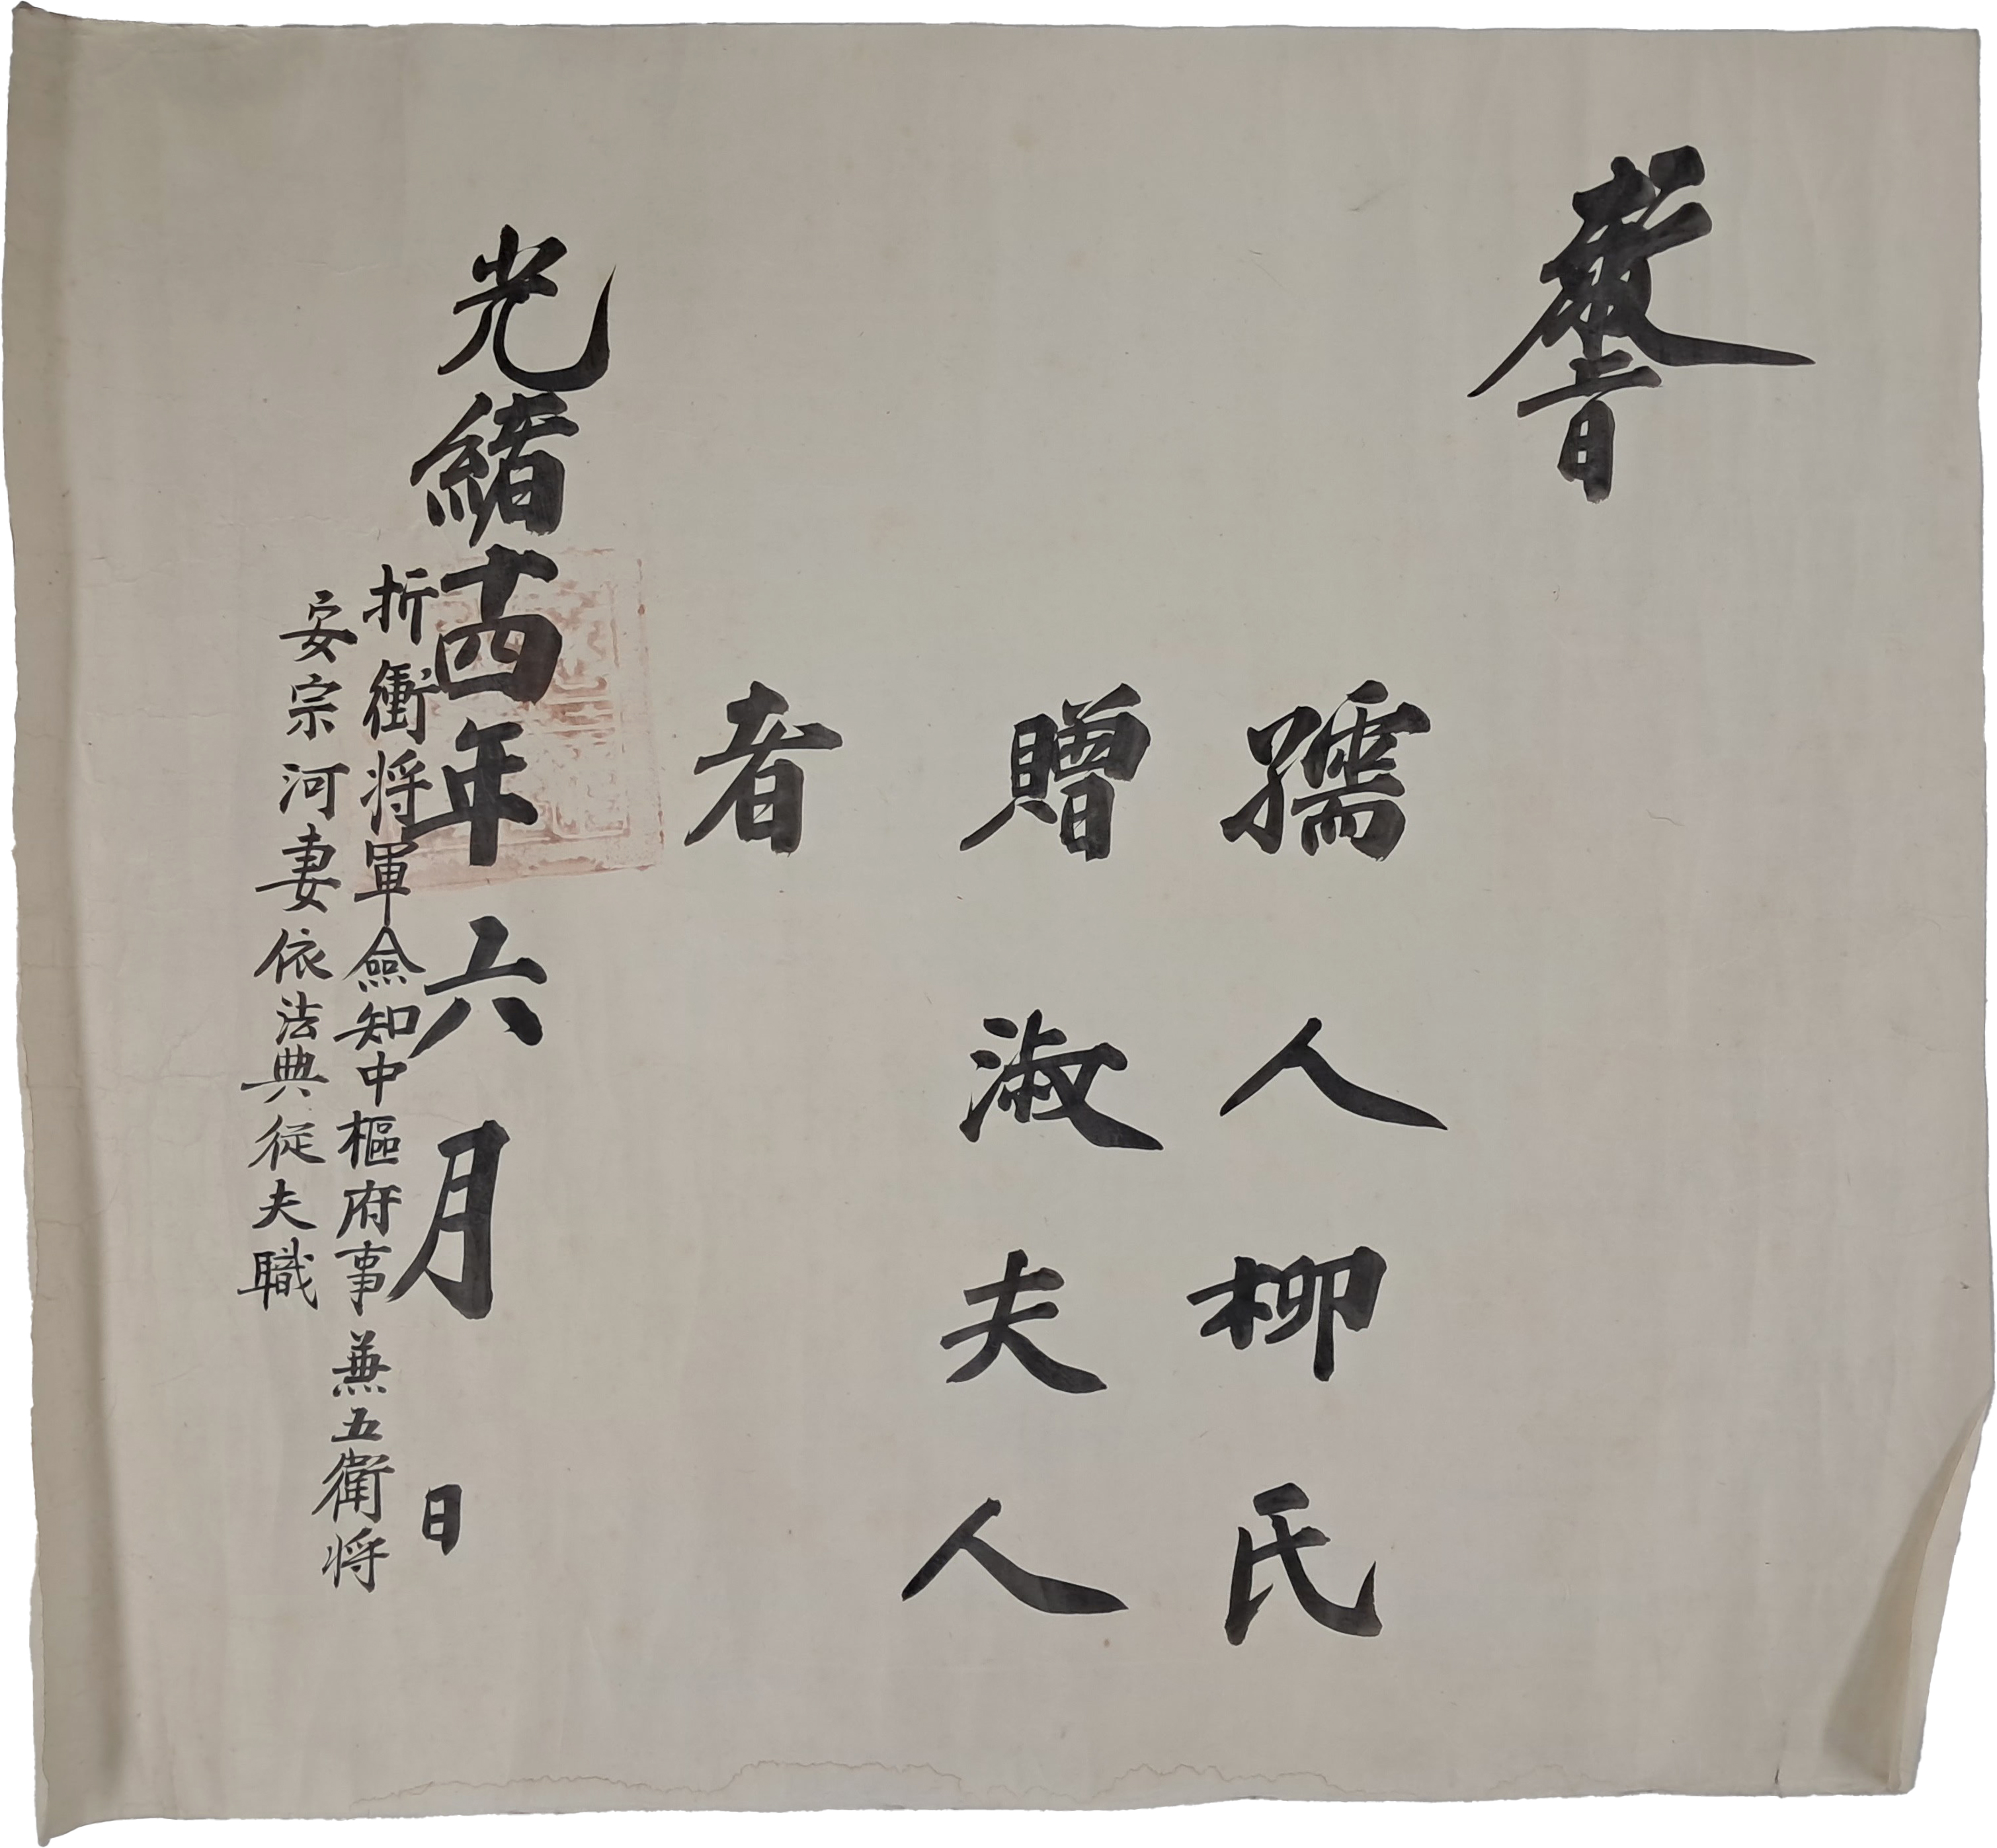 教旨
孺人柳氏
贈淑夫人
者
光緖十四年六月 日
折衝将軍僉知中樞府事兼五衛将
安宗河妻依法典從夫職